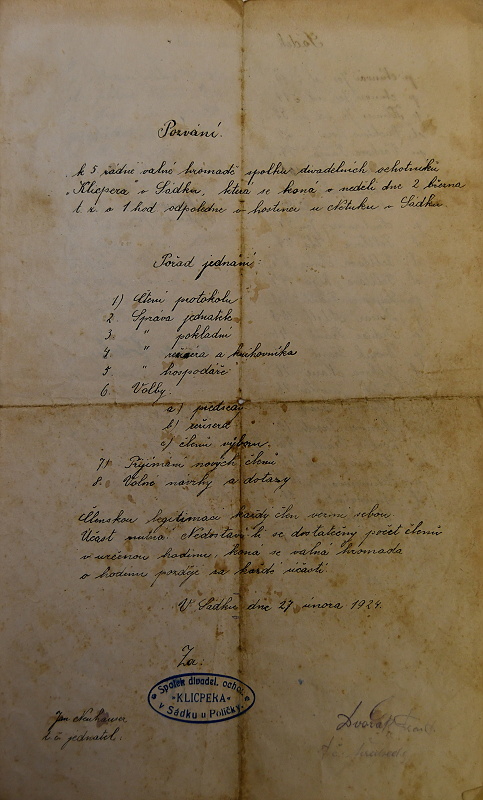 Pozvání.
k 5 řádné valné hromadě spolku divadelních ochotníků
„Klicpera" v Sádku, která se koná v neděli dne 2 března
t. r. o 1 hod odpoledne v hostinci u Netuku v Sádku
Pořad jednání:
1) Čtení protokolu
2. Správa jednatele
3 " pokladní
4. " režiséra a knihovníka
5 " hospodáře
6. Volby.
a) předsedy
b) režiséra
c) členů výboru.
7) Přijímání nových členů
8. Volné návrhy a dotazy
Členskou legitimaci každý člen vezmi sebou
Účast nutná. Nedostaví-li se dostatečný počet členů
v určenou hodinu, koná se valná hromada
o hodinu později za každé účasti.
V Sádku dne 27 února 1924.
Za:
Spolek divadel. ochot.
"KLICPERA"
v Sádku u Poličky.
Jan Neuhäuser
t. č. jednatel.
Dvořák
t. č. předseda